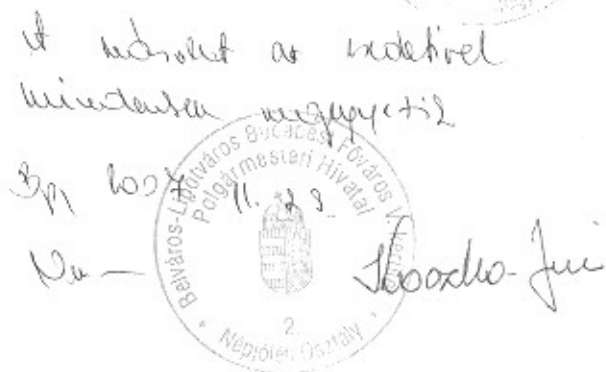 A másolat az eredetivel
mindenben megegyezik
Bp, 2007. 11. 28.
Belváros-Lipótváros Budapest Főváros V. kerület
Polgármesteri Hivatal
2.
Népjóléti Osztály